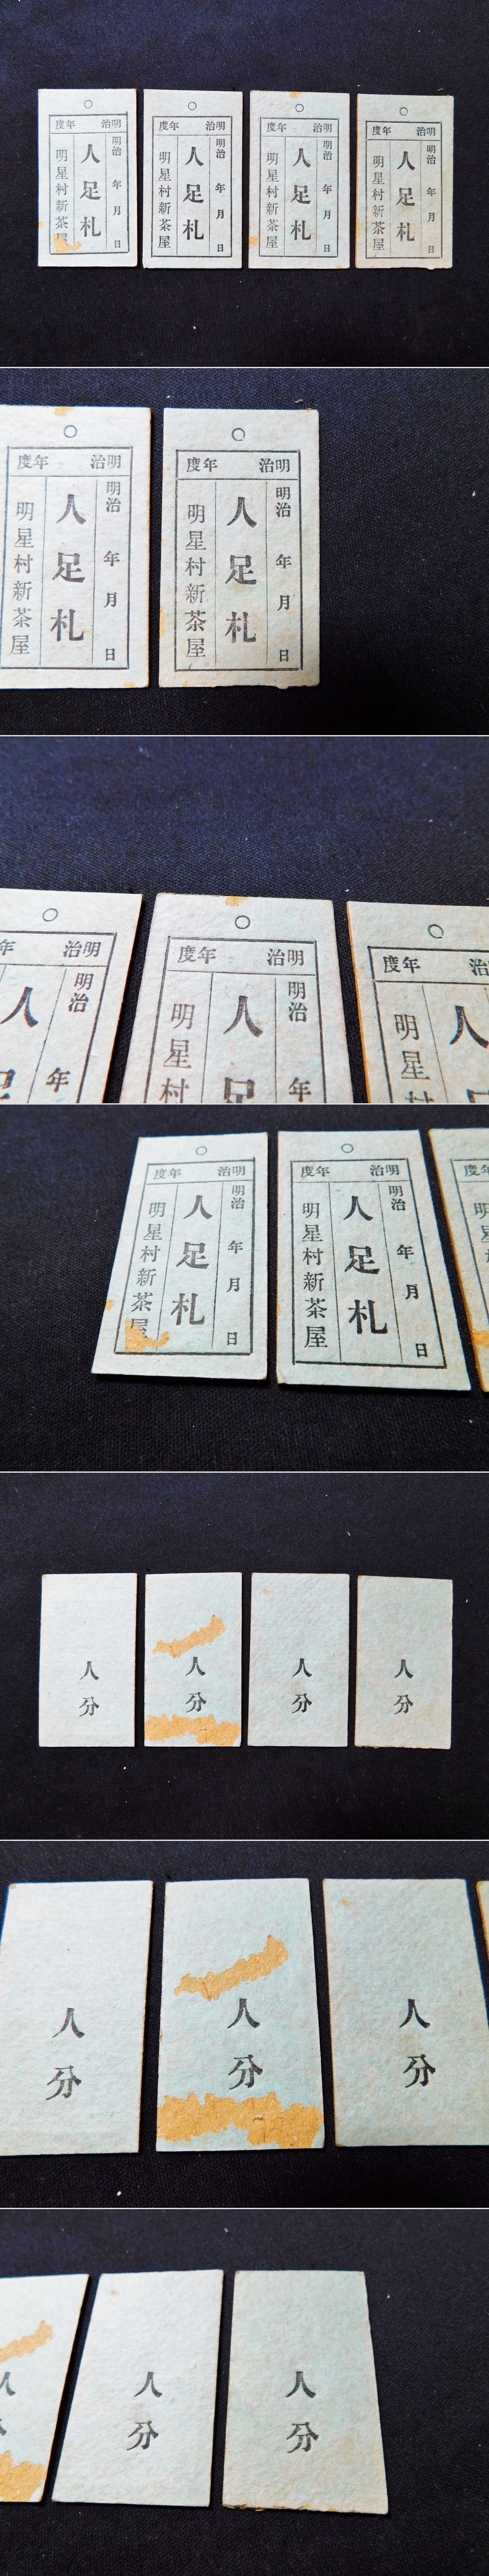 明治 年度
明治 年 月 日
人足札
明星村新茶屋
明治 年度
明治 年 月 日
人足札
明星村新茶屋
明治 年度
明治 年 月 日
人足札
明星村新茶屋
明治 年度
明治 年 月 日
人足札
明星村新茶屋
明治 年度
明治 年 月 日
人足札
明星村新茶屋
明治 年度
明治 年 月 日
人足札
明星村新茶屋
明治 年
明治 年
人
明治 年度
明治 年
人足
明星村
治 年度
人
明星村
明治 年度
明治 年 月 日
人足札
明星村新茶屋
明治 年度
明治 年 月 日
人足札
明星村新茶屋
年度
明星
人分
人分
人分
人分
人分
人分
人分
人分
人分